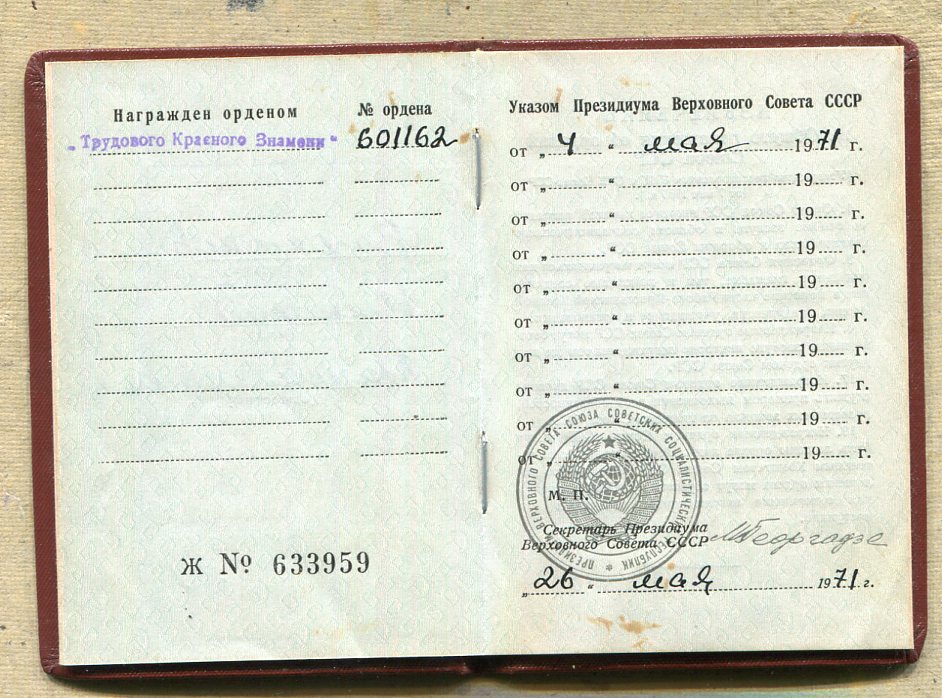 Награжден орденом
№ ордена
„Трудового Красного Знамени“
601162
Указом Президиума Верховного Совета СССР
от „ 4 “ мая 1971 г.
от „ “ 19 г.
от „ “ 19 г.
от „ “ 19 г.
от „ “ 19 г.
от „ “ 19 г.
от „ “ 19 г.
от „ “ 19 г.
от „ “ 19 г.
от „ “ 19 г.
ПРЕЗИДИУМ ВЕРХОВНОГО СОВЕТА СОЮЗА СОВЕТСКИХ СОЦИАЛИСТИЧЕСКИХ РЕСПУБЛИК
М. П.
Секретарь Президиума
Верховного Совета СССР
МГеоргадзе
„ 26 “ мая 1971 г.
Ж № 633959